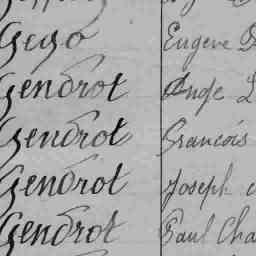 Gego Eugene
Gendrot Ange
Gendrot Francois
Gendrot Joseph
Gendrot Paul